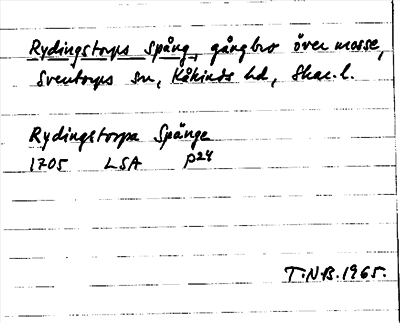 Rydingstorps Spång, gångbro över mosse,
Sventorps sn, Kåkinds hd, Skar. l.
Rydingstorpa Spånge
1705 LSA P24
T.N.B. 1965.